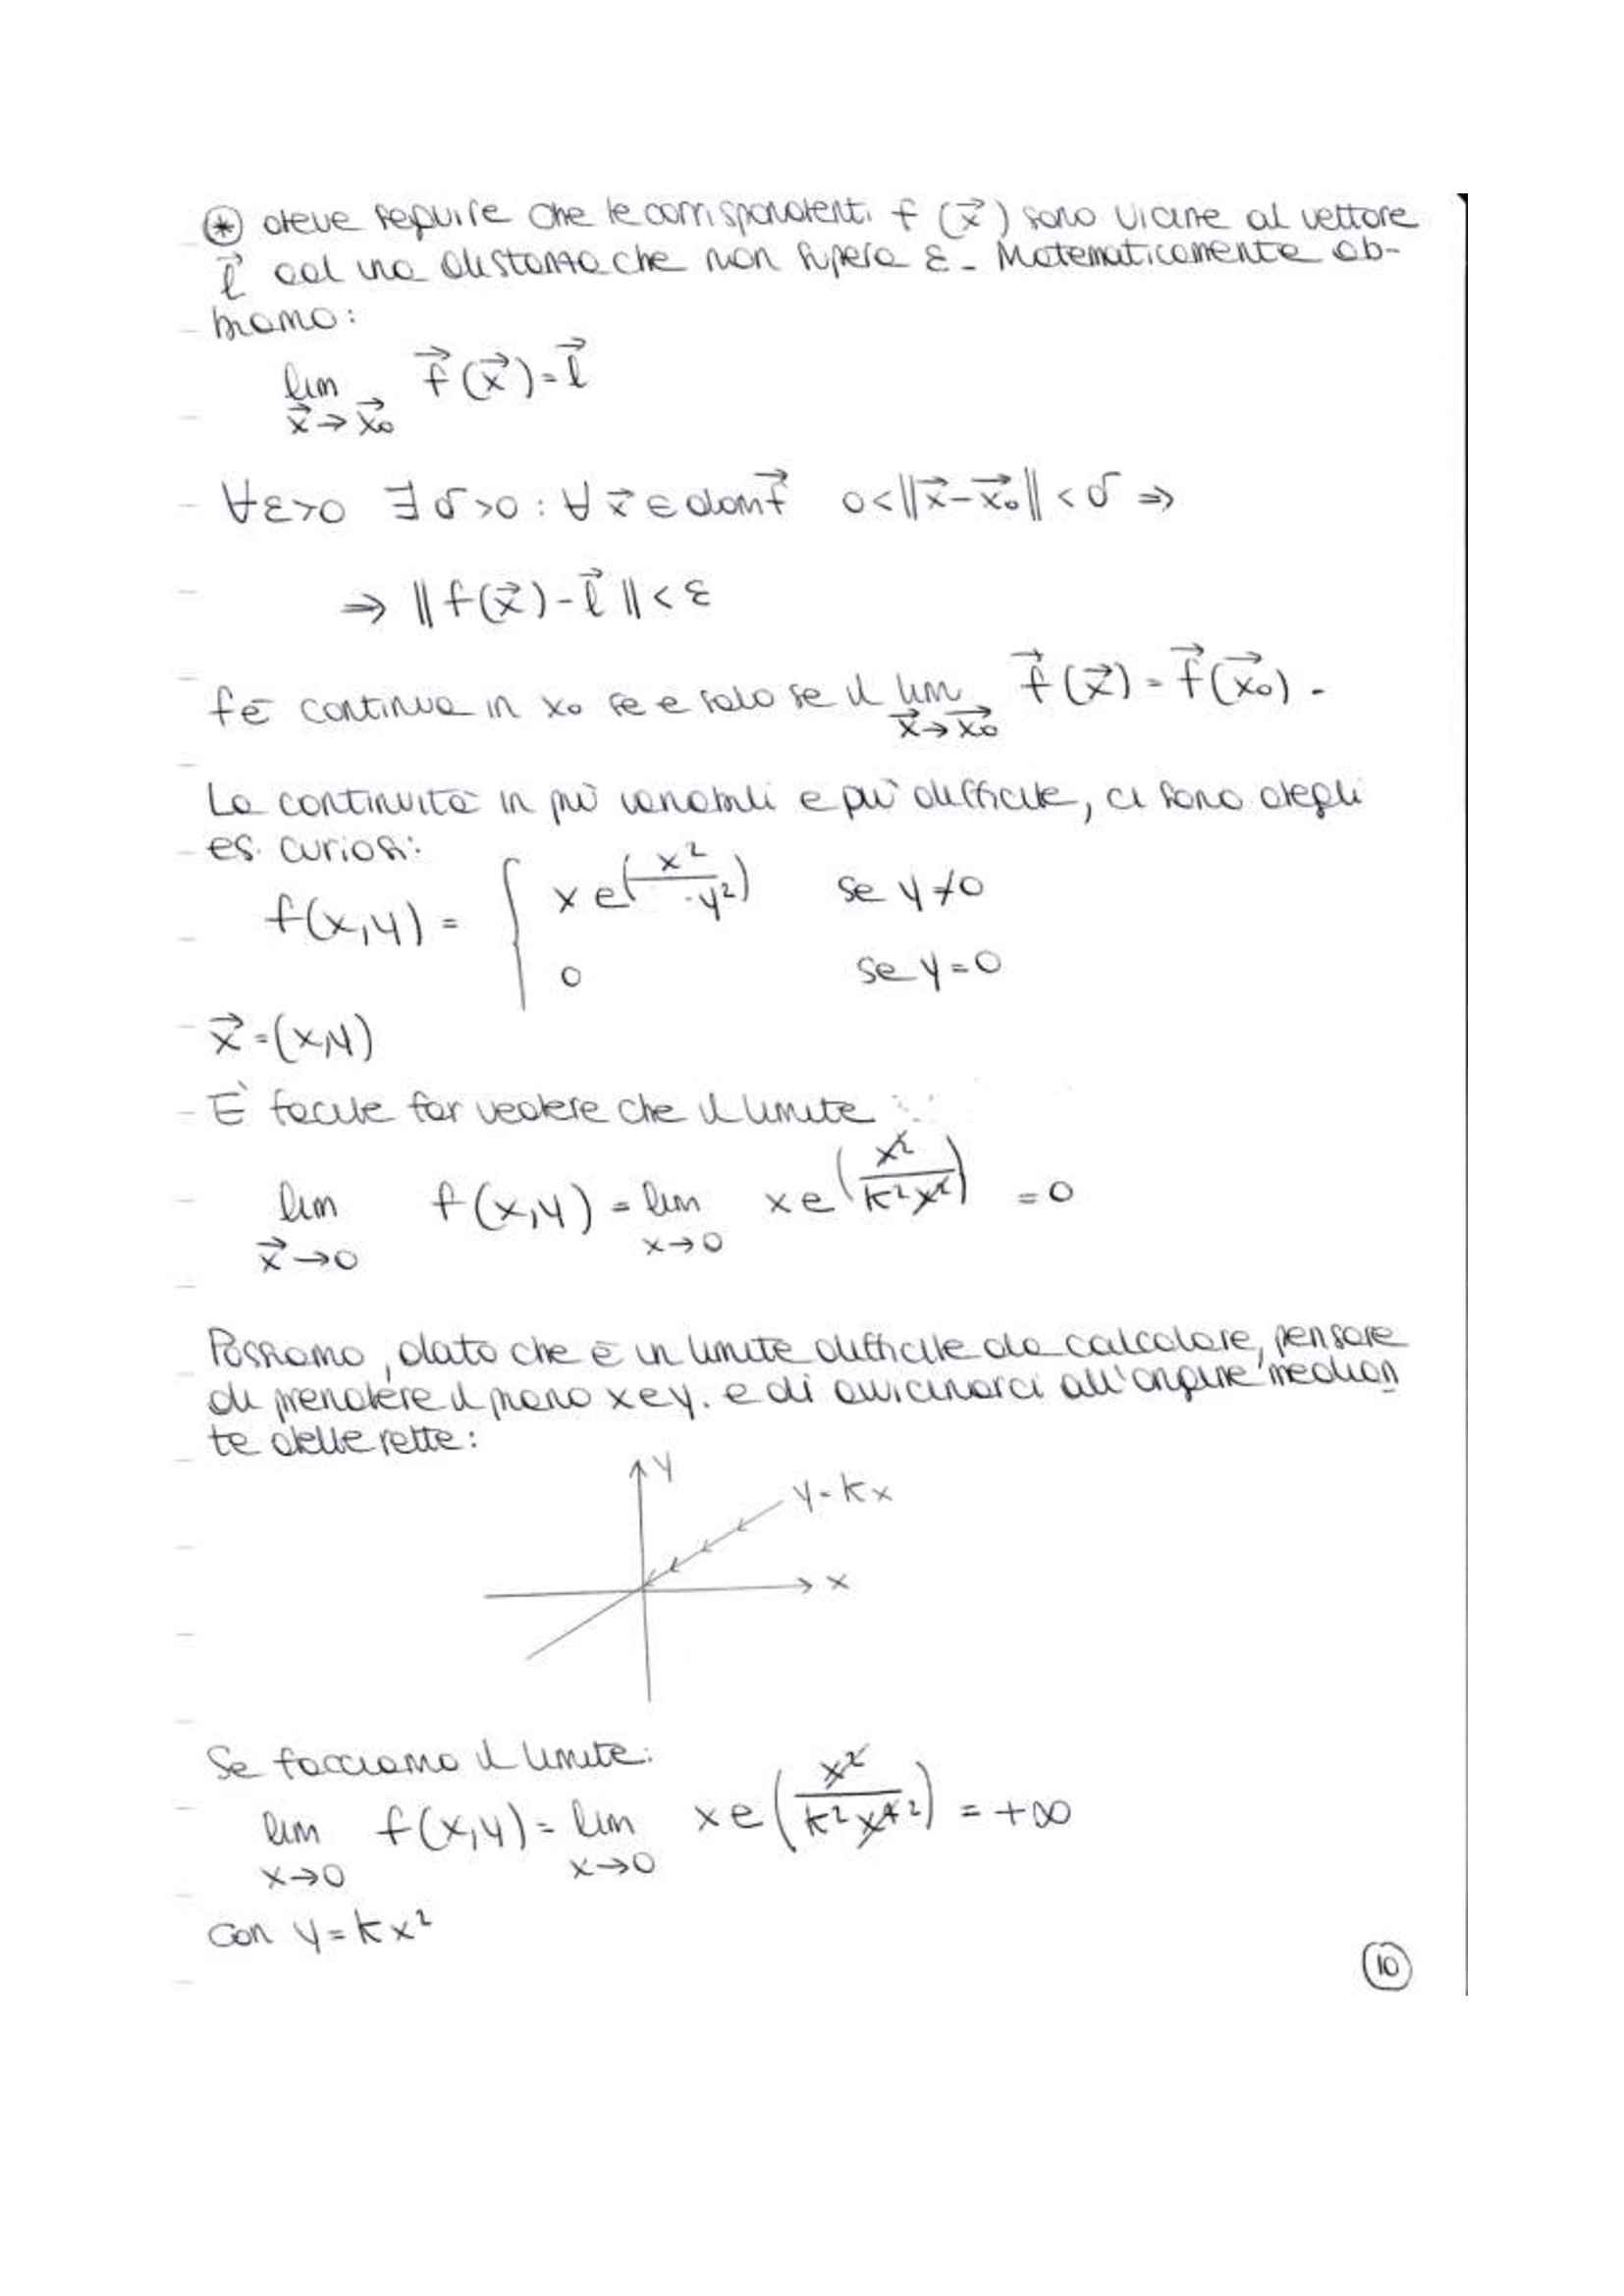 * deve seguire che le corrispondenti f (x⃗) sono vicine al vettore
l⃗ ad una distanza che non supera ε. Matematicamente ab-
biamo:
lim f⃗(x⃗) = l⃗
x⃗→x⃗₀
∀ε>0 ∃δ>0 : ∀x⃗ ∈ dom f⃗ 0<‖x⃗-x⃗₀‖<δ ⇒
⇒ ‖f(x⃗)-l⃗‖<ε
f è continua in x₀ se e solo se il lim f⃗(x⃗) = f⃗(x⃗₀).
x⃗→x⃗₀
La continuità in più variabili e più difficile, ci sono degli
es. curiosi:
f(x,y) = { x e^(x²/-y²) se y≠0
0 se y=0
x⃗=(x,y)
È facile far vedere che il limite
lim f(x,y) = lim x e^(x²/k²x²) = 0
x⃗→0 x→0
Possiamo, dato che è un limite difficile da calcolare, pensare
di prendere il piano x e y. e di avvicinarci all'origine median
te delle rette:
y
y=kx
x
Se facciamo il limite:
lim f(x,y) = lim x e (x²/k²x⁴²) = +∞
x→0 x→0
con y=kx²
10